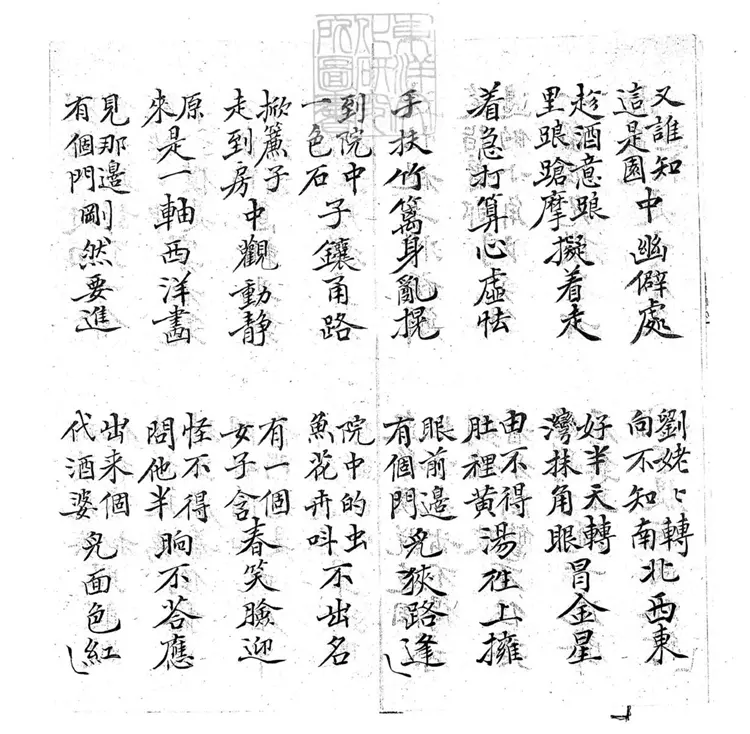 又誰知這是園中幽僻處
劉姥〻轉向不知南北西東
趁酒意踉里踉蹌摩擬着走
好半天轉灣抹角眼冒金星
着急打算心虛怯
由不得肚裡黃湯往上擁
手扶竹籬身亂掍
眼前邊有個門兒狹路逢
到院中一色石子鑲甬路
院中的虫魚花卉叫不出名
掀簾子走到房中觀動静
有一個女子含春笑臉迎
原來是一軸西洋畫
怪不得問他半晌不荅應
見那邊有個門剛然要進
出来個代酒婆兒面色紅